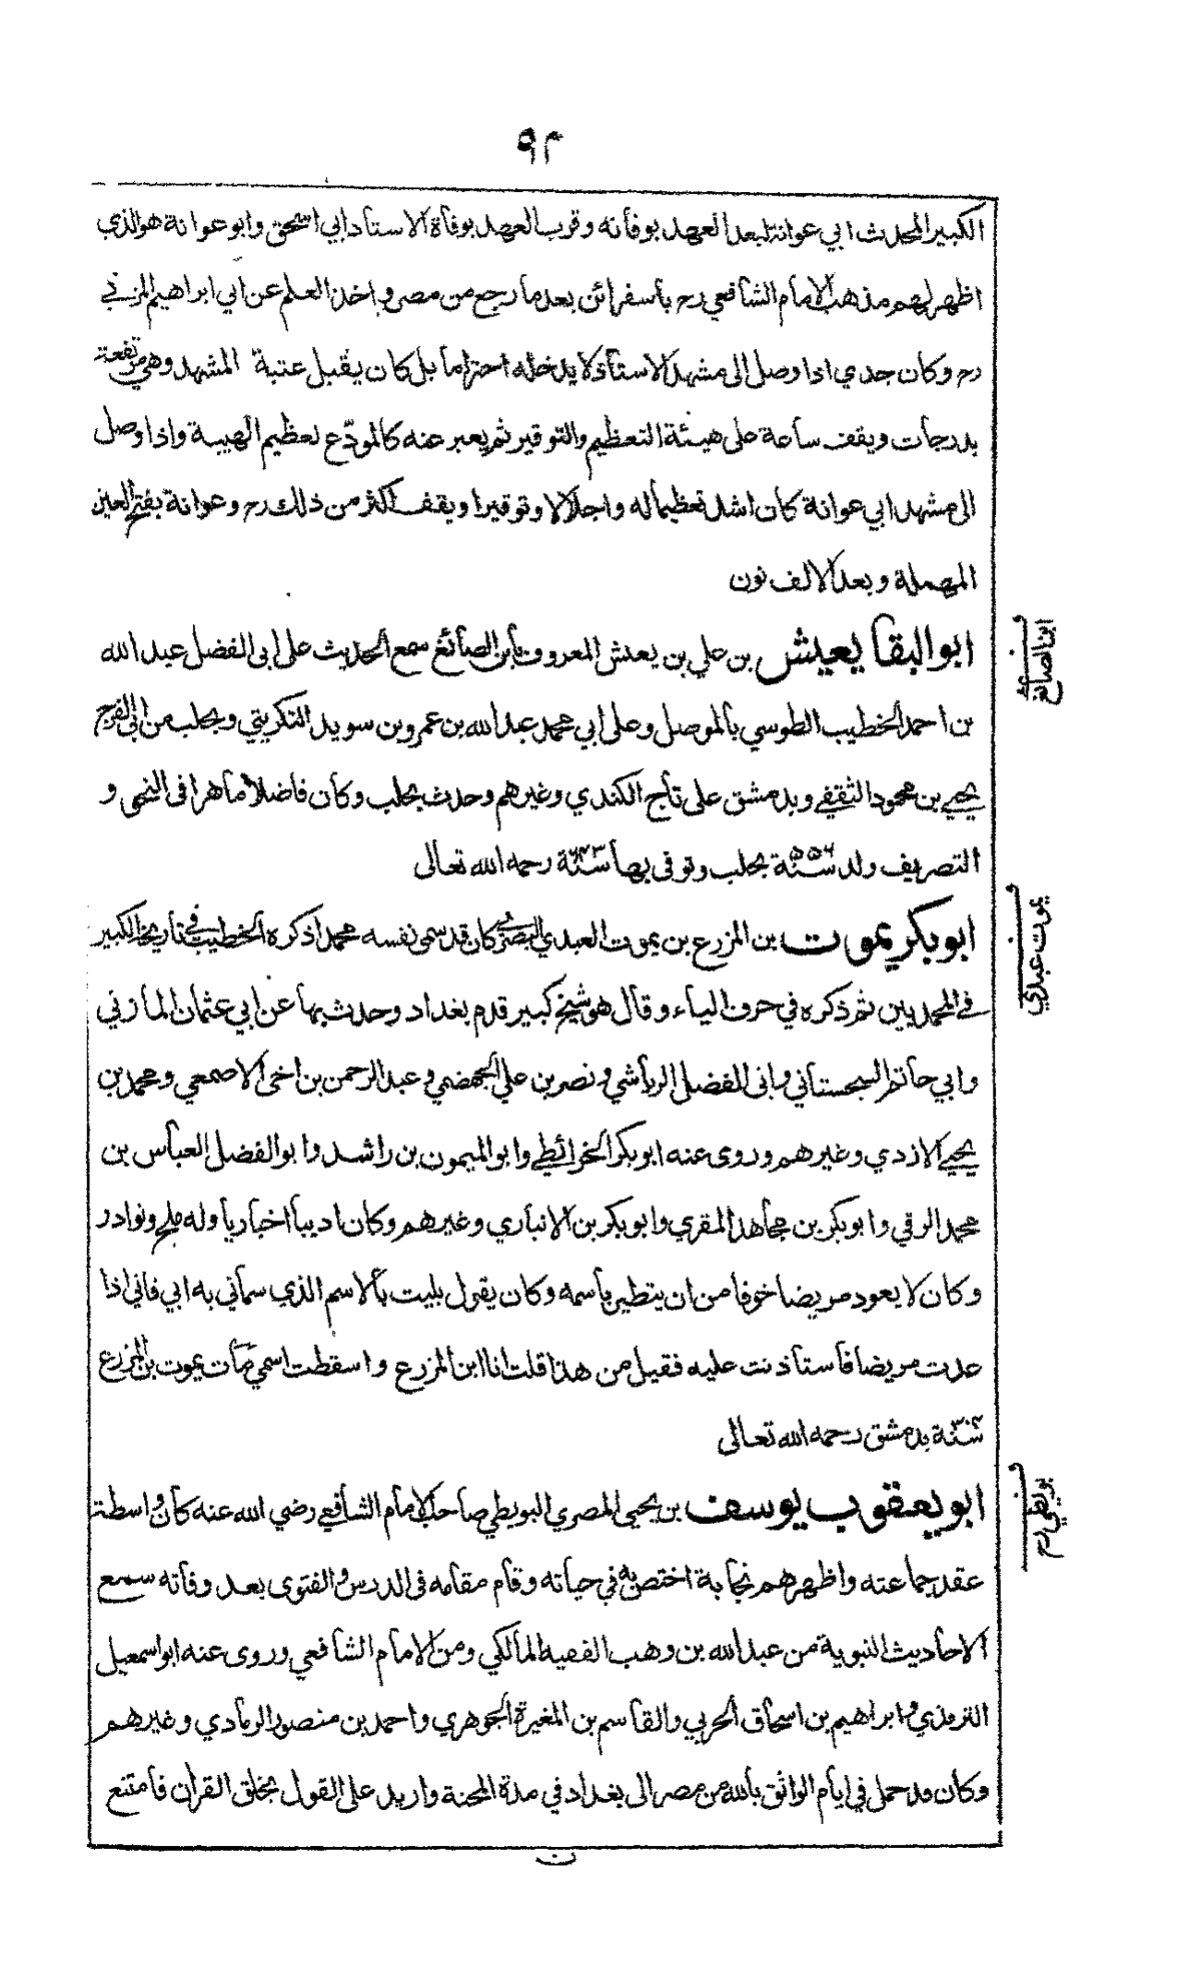 ٩٣
الكبير المحدث ابي عوانة لبعد العهد بوفاته وقرب العهد بوفاة الاستاد ابي اسحق وابو عوانة هو الذي
اظهر لهم مذهب الامام الشافعي رح باسفرائن بعد ما رجع من مصر واخذ العلم عن ابي ابراهيم المزني
رح وكان جدي اذا وصل الى مشهد الاستاذ لا يدخله احتراما بل كان يقبل عتبة المشهد وهي مرتفعة
بدرجات ويقف ساعة على هيئة التعظيم والتوقير ثم يعبر عنه كالمودّع لعظيم الهيبة واذا وصل
الى مشهد ابي عوانة كان اشد تعظيما له واجلالا وتوقيرا ويقف اكثر من ذلك رح وعوانة بفتح العين
المهملة وبعد الالف نون
ابو البقا يعيش بن علي بن يعيش المعروف بابن الصائغ سمع الحديث على ابي الفضل عبد الله
بن احمد الخطيب الطوسي بالموصل وعلى ابي محمد عبد الله بن عمرو بن سويد التكريتي وبحلب من ابي الفرج
يحيي بن محمود الثقفي وبدمشق على تاج الكندي وغيرهم وحدث بحلب وكان فاضلا ماهرا في النحو و
التصريف ولد سنة ٥٥٦ بحلب وتوفي بها سنة ٦٤٣ رحمه الله تعالى
ابو بكر يموت بن المزرع بن يموت العبدي البصري كان قد سمى نفسه محمدا ذكره الخطيب في تاريخه الكبير
في المحمديين ثم ذكره في حرف الياء وقال هو شيخ كبير قدم بغداد وحدث بها عن ابي عثمان المازني
وابي حاتم السجستاني وابي الفضل الرياشي ونصر بن علي الجهضمي وعبد الرحمن بن اخي الاصمعي ومحمد بن
يحيي الازدي وغيرهم وروى عنه ابو بكر الخرائطي وابو الميمون بن راشد وابو الفضل العباس بن
محمد الرقي وابو بكر بن مجاهد المقري وابو بكر بن الانباري وغيرهم وكان اديبا اخباريا وله ملح ونوادر
وكان لا يعود مريضا خوفا من ان يتطير باسمه وكان يقول بليت بالاسم الذي سماني به ابي فاني اذا
عدت مريضا فاستاذنت عليه فقيل من هذا قلت انا ابن المزرع واسقطت اسمي مات يموت بن المزرع
سنة ٣٠٤ بدمشق رحمه الله تعالى
ابو يعقوب يوسف بن يحيى المصري البويطي صاحب الامام الشافعي رضي الله عنه كان واسطة
عقد جماعته واظهرهم نجابة اختص به في حياته وقام مقامه في الدرس والفتوى بعد وفاته سمع
الاحاديث النبوية من عبد الله بن وهب الفقيه المالكي ومن الامام الشافعي وروى عنه ابو اسمعيل
الترمذي وابراهيم بن اسحاق الحربي والقاسم بن المغيرة الجوهري واحمد بن منصور الرمادي وغيرهم
وكان قد حمل في ايام الواثق بالله من مصر الى بغداد في مدة المحنة واريد على القول بخلق القران فامتنع
ن
ابن الصائغ
يموت عبدي
بويطي رح